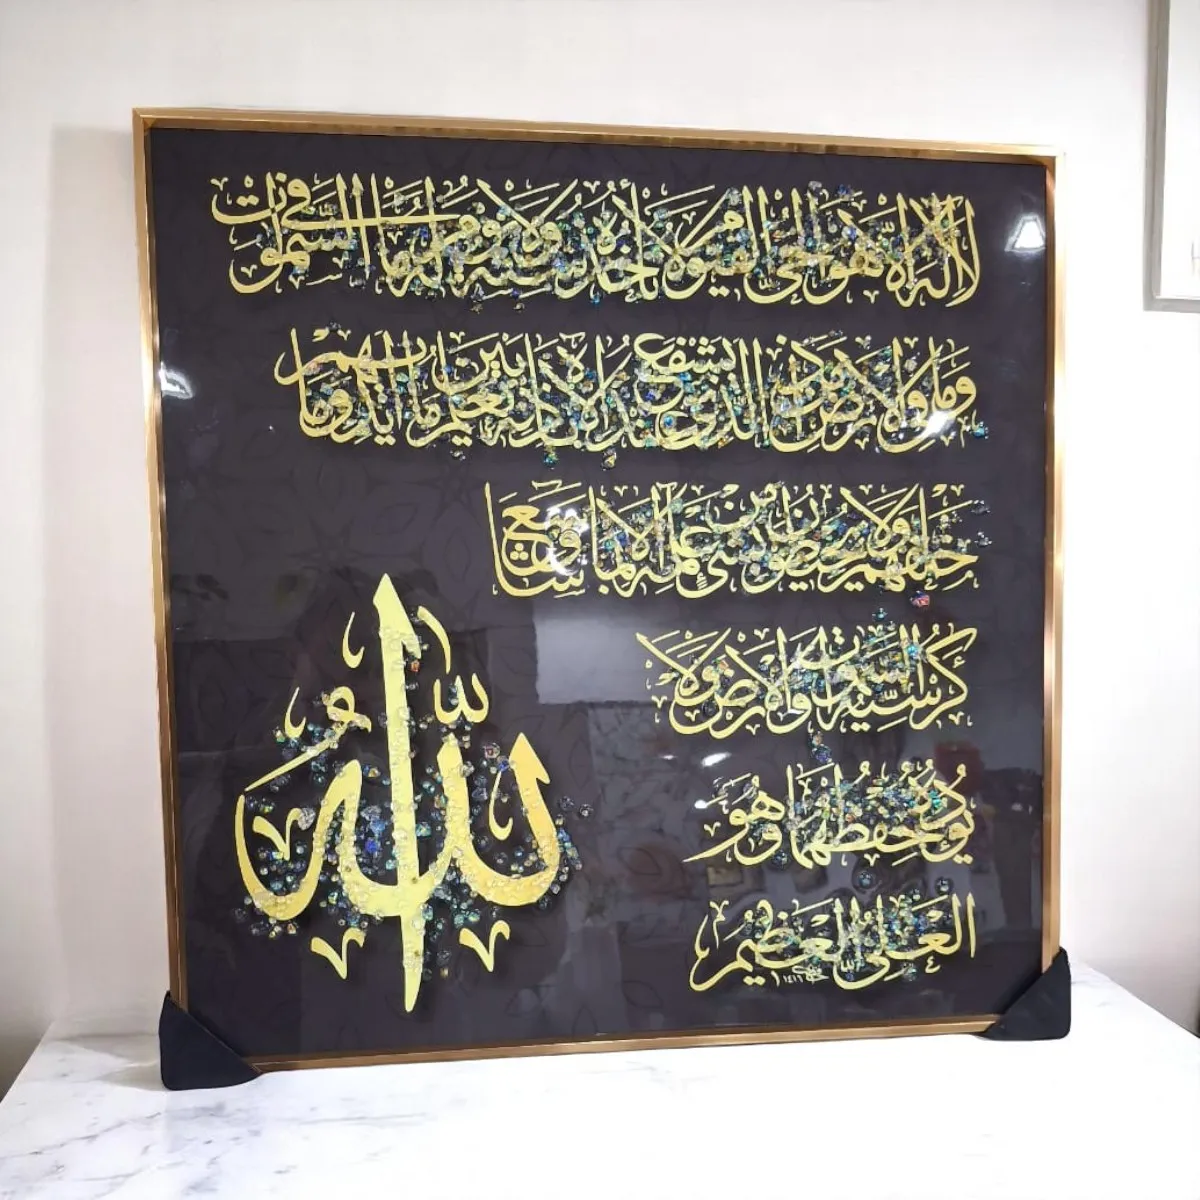 لا إله إلا هو الحي القيوم لا تأخذه سنة ولا نوم له ما في السموات
وما في الأرض من ذا الذي يشفع عنده إلا بإذنه يعلم ما بين أيديهم وما
خلفهم ولا يحيطون بشيء من علمه إلا بما شاء وسع
كرسيه السموات والأرض ولا
يؤده حفظهما وهو
العلي العظيم
١٤١٦
الله